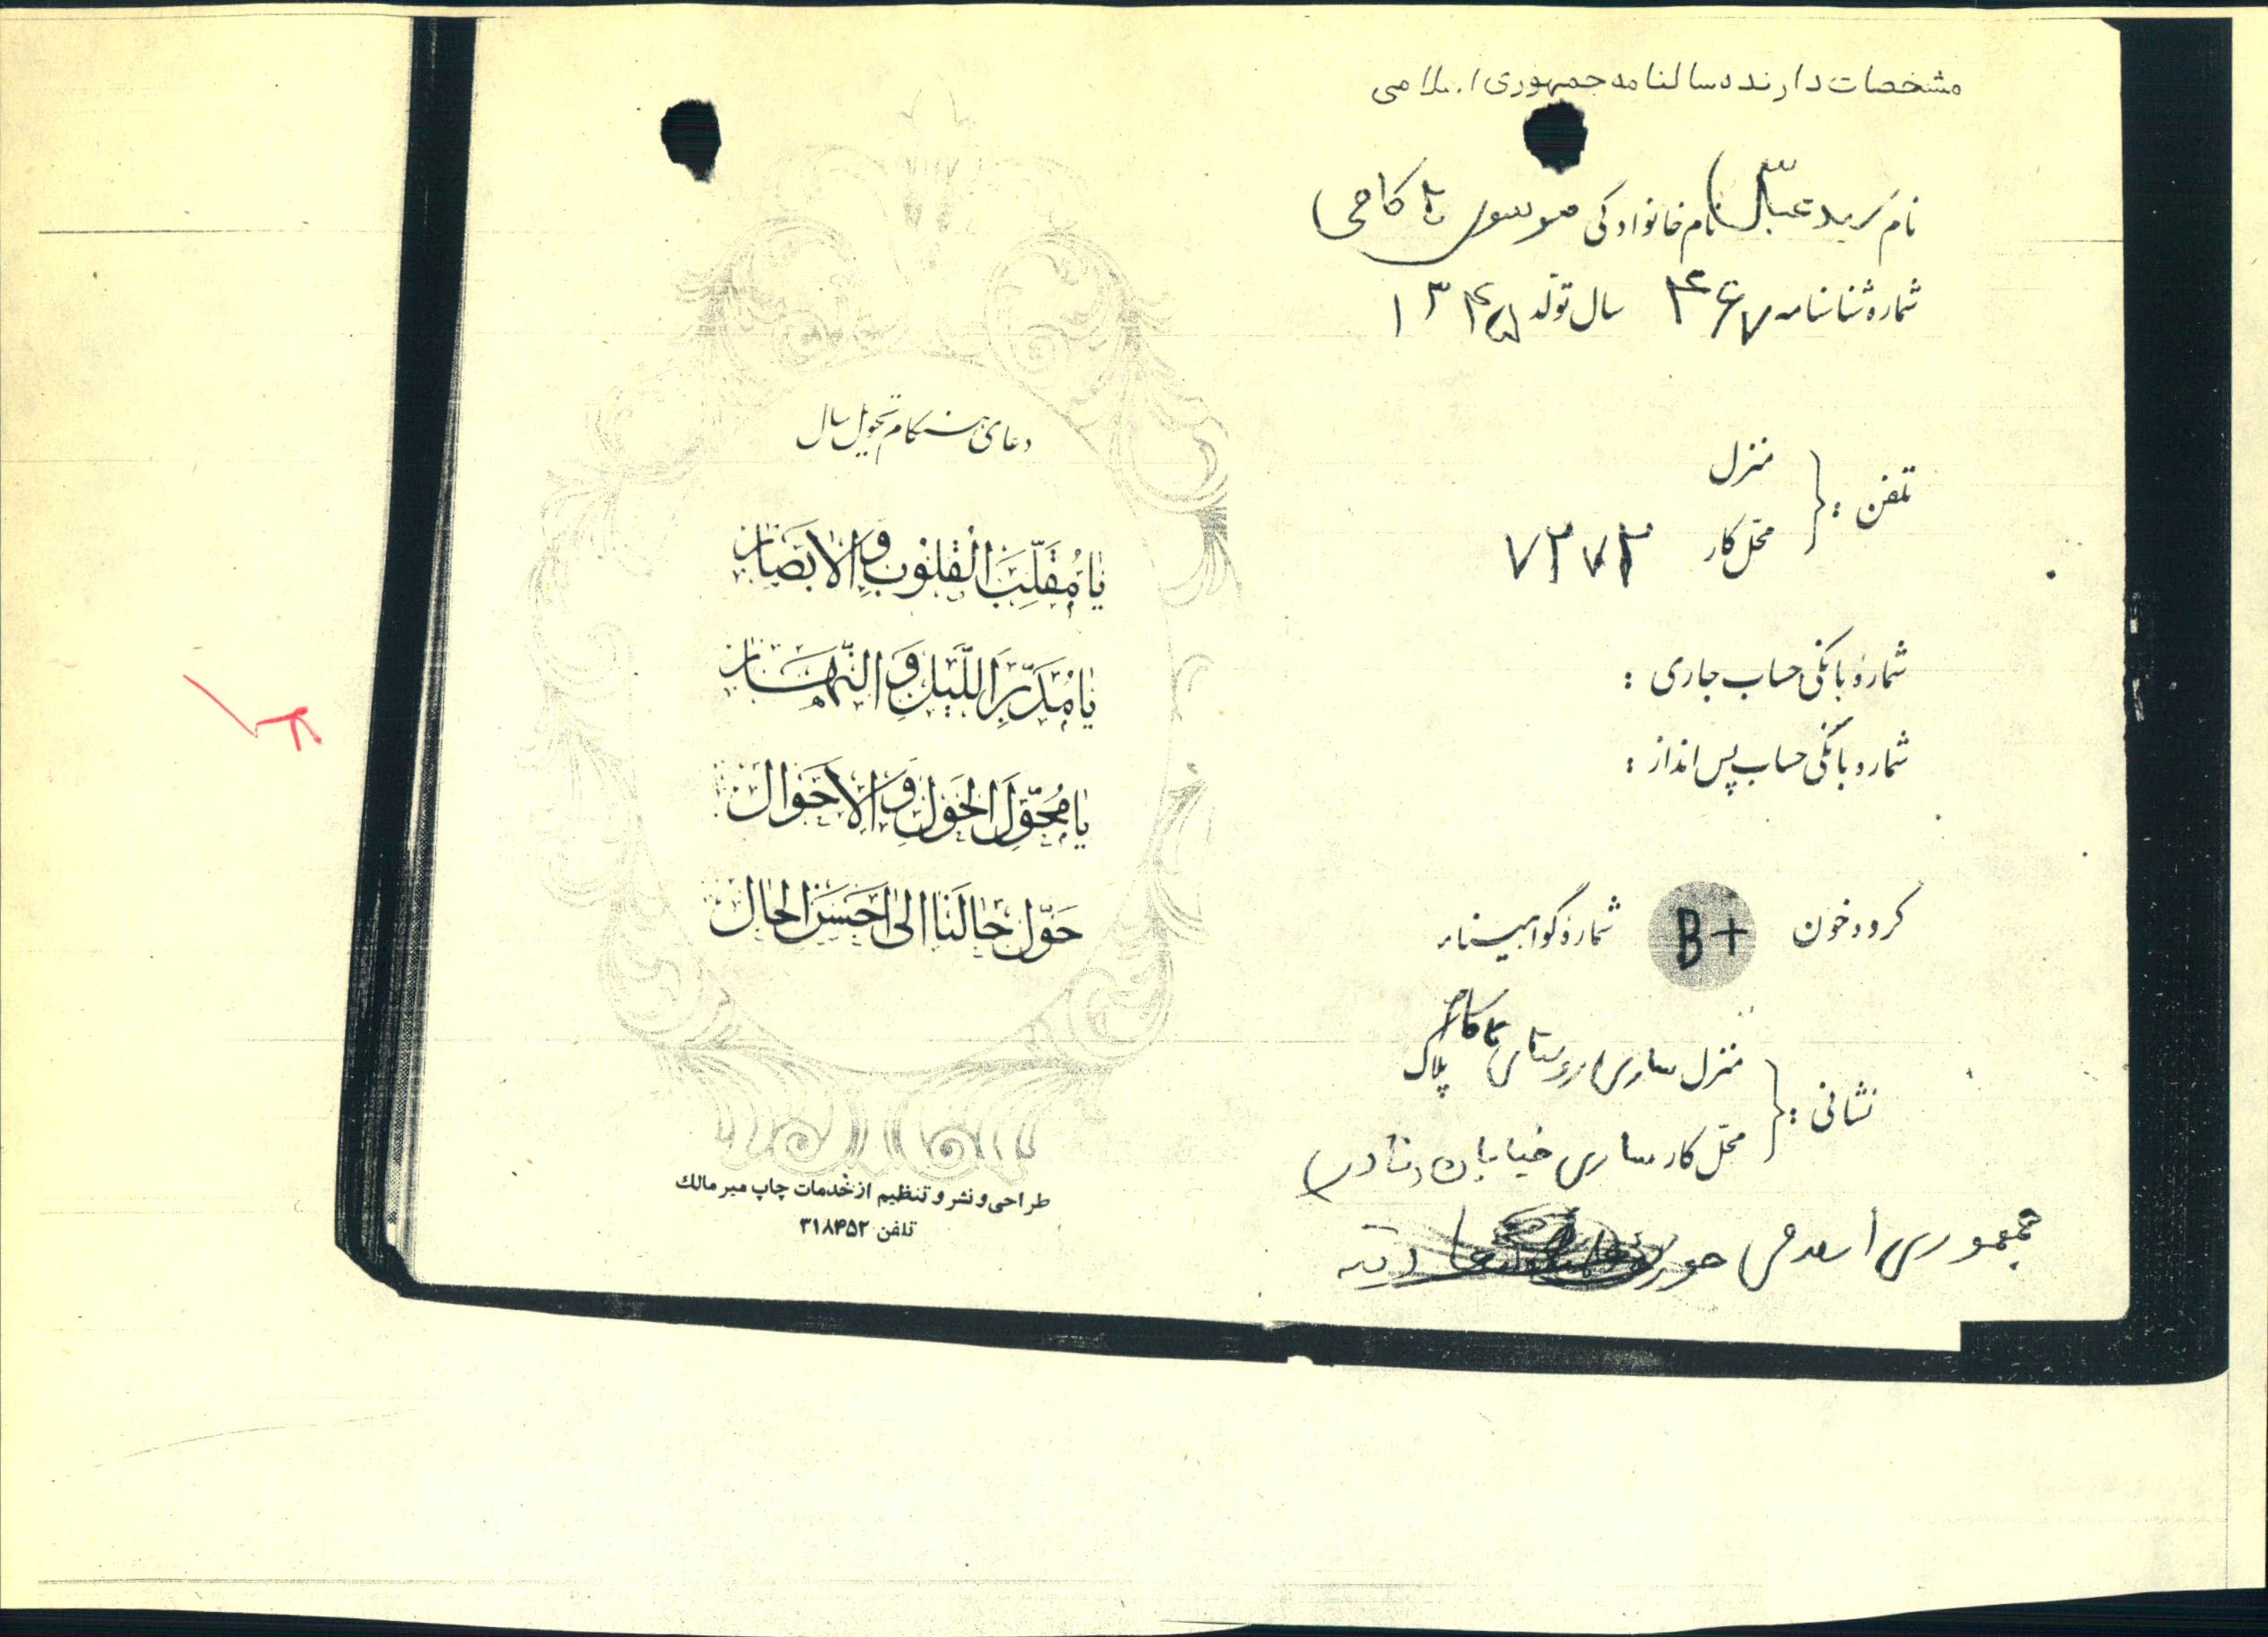 مشخصات دارنده سالنامه جمهوری اسلامی
نام سید عباس نام خانوادگی موسوی تاکامی
شماره شناسنامه ۴۶۷ سال تولد ۱۳۴۵
تلفن : منزل
محل کار ۷۲۷۲
شماره بانکی حساب جاری :
شماره بانکی حساب پس انداز :
گروه خون B+ شماره گواهینامه
نشانی : منزل ساری روستای تاکام پلاک
محل کار ساری خیابان نادر
جمهوری اسلامی
دعای هنگام تحویل سال
یا مُقَلِّبَ الْقُلُوبِ وَالْاَبْصَارِ
یا مُدَبِّرَ اللَّیْلِ وَالنَّهَارِ
یا مُحَوِّلَ الْحَوْلِ وَالْاَحْوَالِ
حَوِّلْ حَالَنَا اِلیٰ اَحْسَنِ الْحَالِ
طراحی و نشر و تنظیم از خدمات چاپ میر مالك
تلفن ۳۱۸۴۵۲